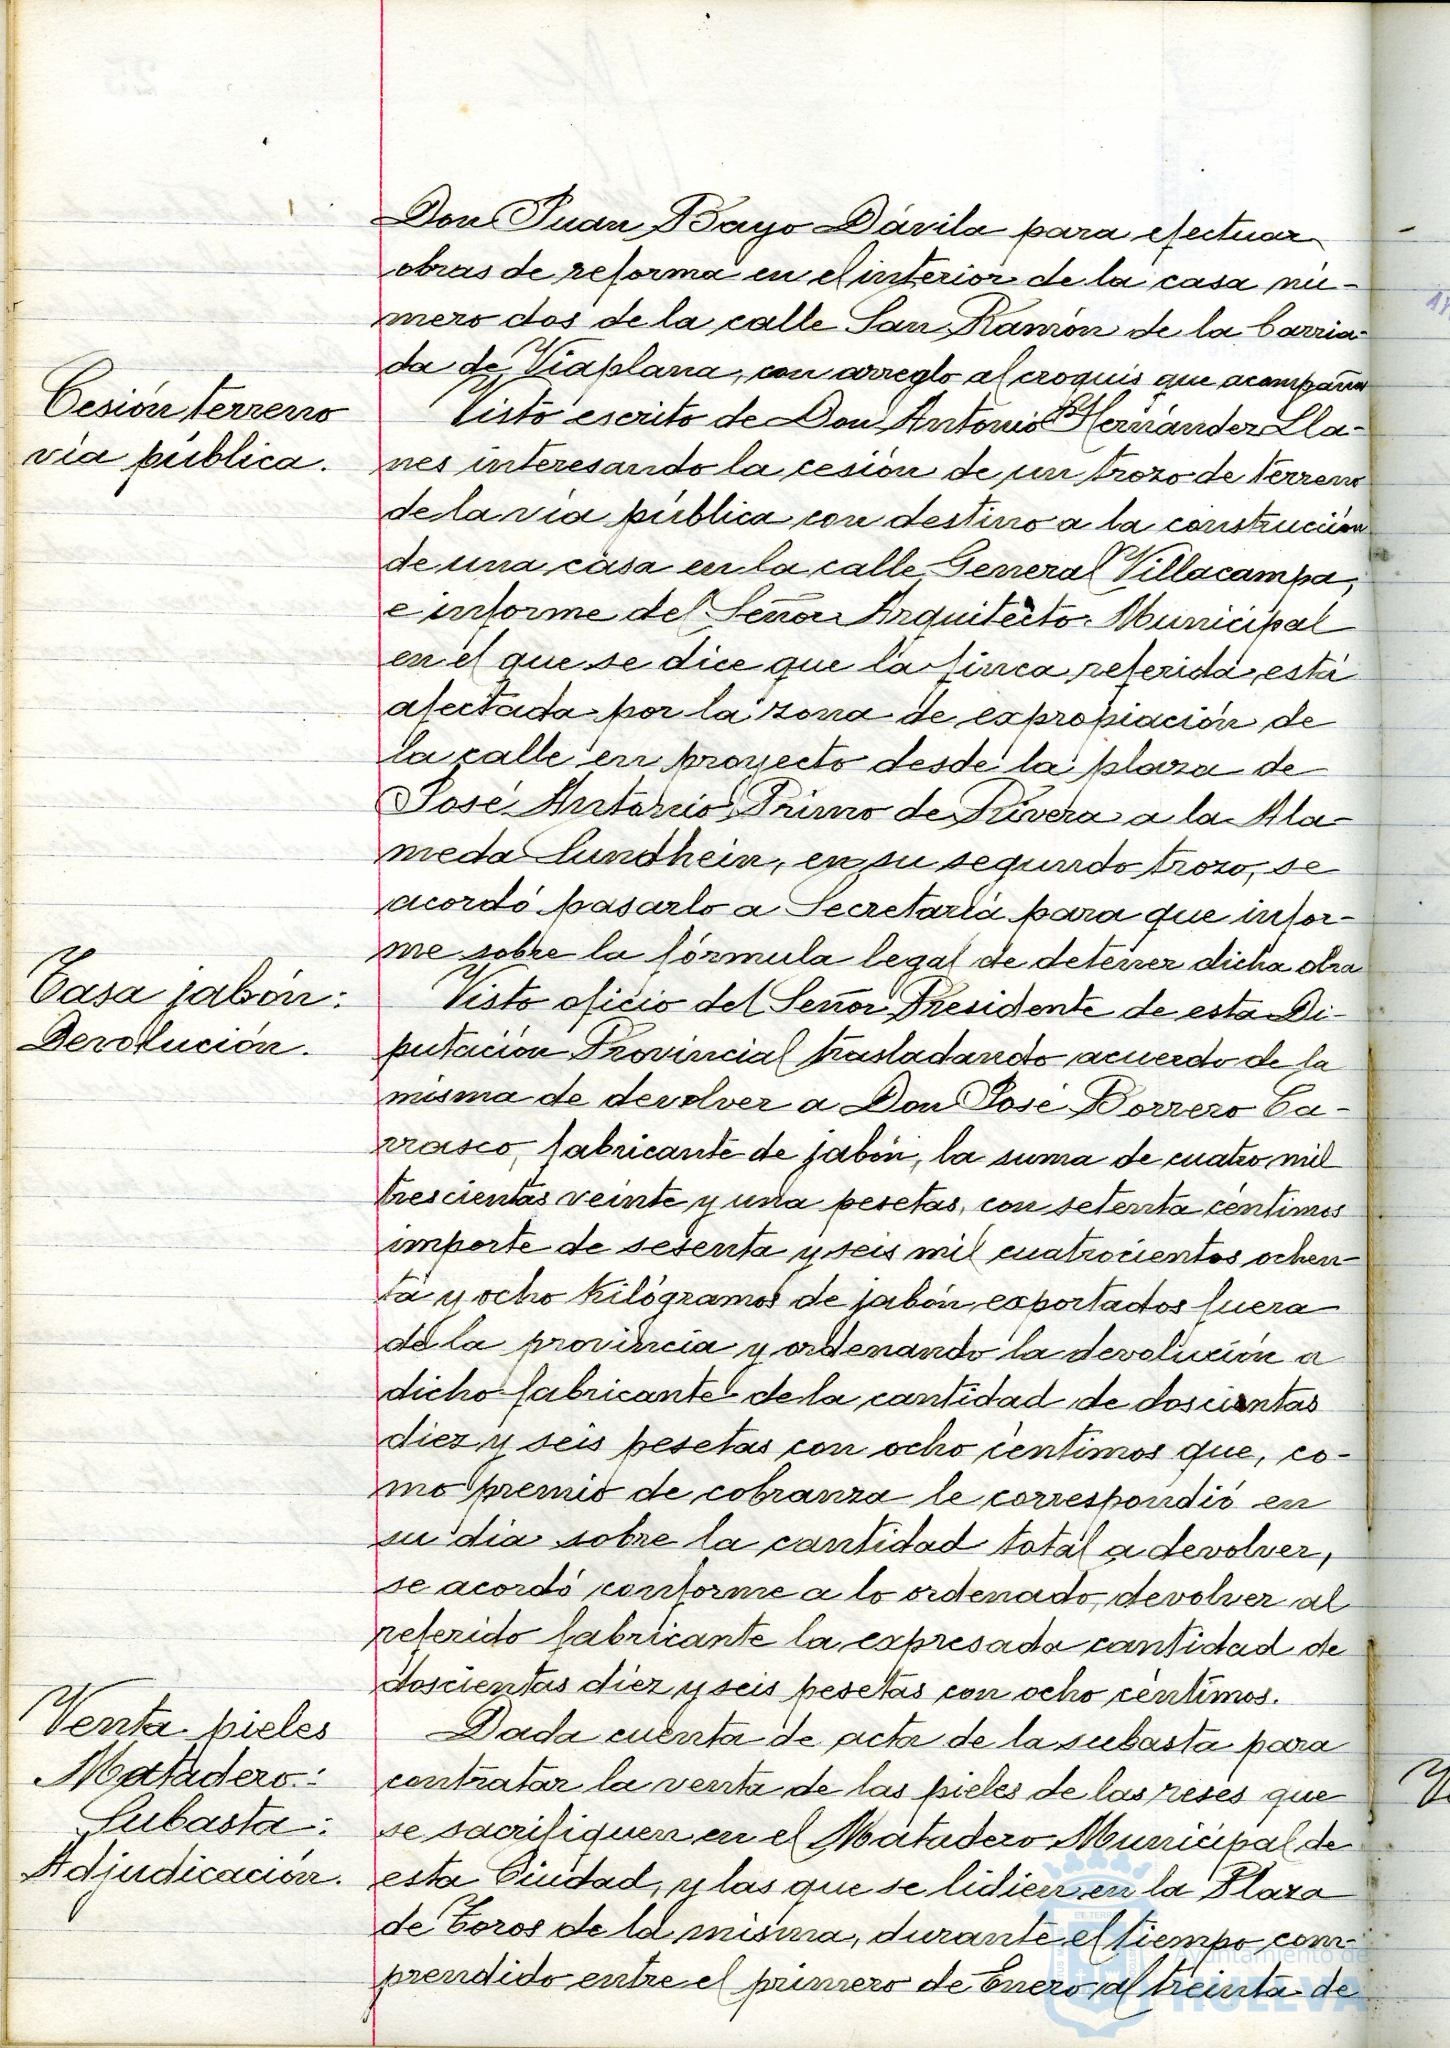 Don Juan Bayo Dávila para efectuar
obras de reforma en el interior de la casa nú-
mero dos de la calle San Ramón de la barria-
da de Viaplana, con arreglo al croquis que acompaña
Cesión terreno
vía pública.
Visto escrito de Don Antonio Hernández Lla-
nes interesando la cesión de un trozo de terreno
de la vía pública con destino a la construción
de una casa en la calle General Villacampa,
e informe del Señor Arquitecto Municipal
en el que se dice que la finca referida está
afectada por la zona de expropiación de
la calle en proyecto desde la plaza de
José Antonio Primo de Rivera a la Ala-
meda Sundhein, en su segundo trozo, se
acordó pasarlo a Secretaría para que infor-
me sobre la fórmula legal de detener dicha obra
Tasa jabón:
Devolución.
Visto oficio del Señor Presidente de esta Di-
putación Provincial trasladando acuerdo de la
misma de devolver a Don José Borrero Ca-
rrasco, fabricante de jabón, la suma de cuatro mil
trescientas veinte y una pesetas, con setenta céntimos
importe de sesenta y seis mil cuatrocientos ochen-
ta y ocho kilógramos de jabón, exportados fuera
de la provincia y ordenando la devolución a
dicho fabricante de la cantidad de doscientas
diez y seis pesetas con ocho céntimos que, co-
mo premio de cobranza le correspondió en
su día sobre la cantidad total a devolver,
se acordó conforme a lo ordenado, devolver al
referido fabricante la expresada cantidad de
doscientas diez y seis pesetas con ocho céntimos.
Venta pieles
Matadero:
Subasta:
Adjudicación.
Dada cuenta de acta de la subasta para
contratar la venta de las pieles de las reses que
se sacrifiquen en el Matadero Municipal de
esta Ciudad, y las que se lidien en la Plaza
de Toros de la misma, durante el tiempo com-
prendido entre el primero de Enero al treinta de
Ayuntamiento de
HUELVA